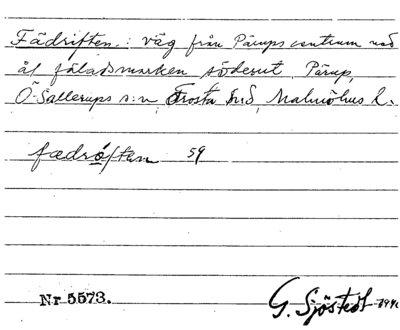 Fädriften: väg från Pårups centrum ned
åt fäladsmarken söderut, Pårup,
Ö. Sallerups s:n, Frosta h:d, Malmöhus l.
fædróften 59
Nr 5573.
G. Sjöstedt 1940